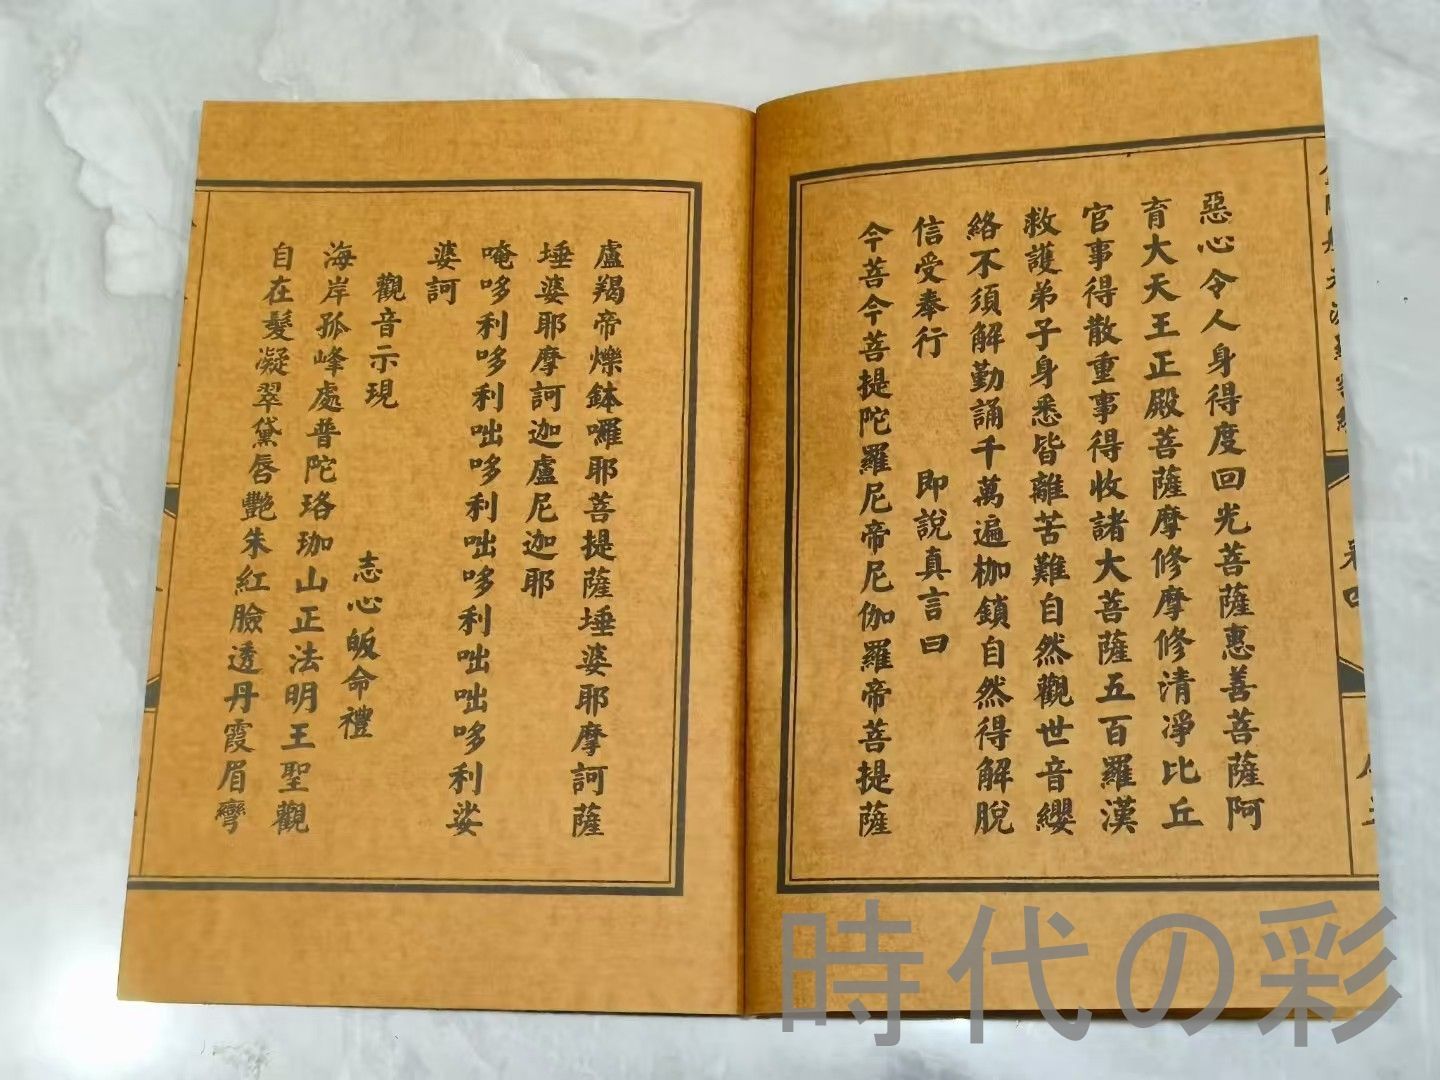 惡心令人身得度回光菩薩惠善菩薩阿
育大天王正殿菩薩摩修摩修清淨比丘
官事得散重事得收諸大菩薩五百羅漢
救護弟子身悉皆離苦難自然觀世音纓
絡不須解勤誦千萬遍枷鎖自然得解脫
信受奉行 即說真言曰
今菩今菩提陀羅尼帝尼伽羅帝菩提薩
盧羯帝爍鉢囉耶菩提薩埵婆耶摩訶薩
埵婆耶摩訶迦盧尼迦耶
唵哆利哆利咄哆利咄哆利咄咄哆利娑
婆訶
觀音示現 志心皈命禮
海岸孤峰處普陀珞珈山正法明王聖觀
自在髮凝翠黛唇艷朱紅臉透丹霞眉彎
卷四
時代の彩